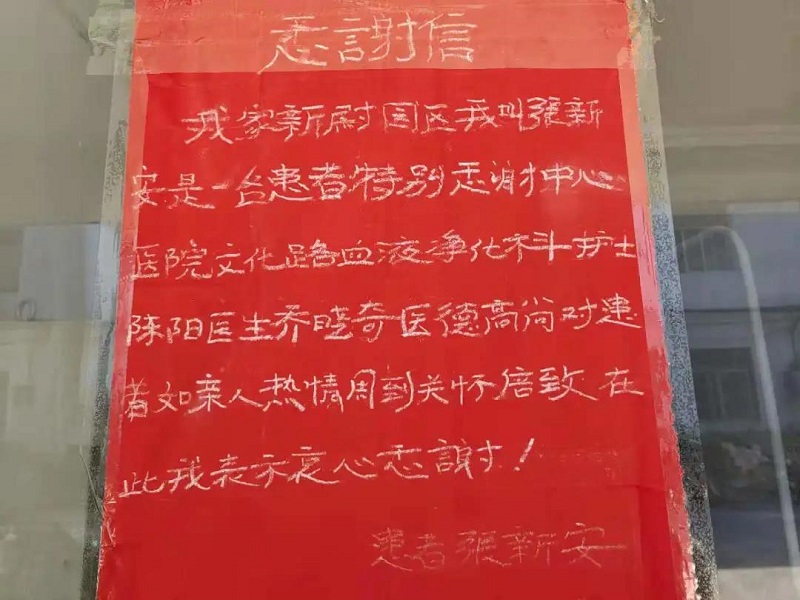 感謝信
我家新尉园区我叫張新
安是一台患者特别感谢中心
医院文化路血液净化科护士
陈阳医生乔晓奇医德高尚对患
者如亲人热情周到关怀倍致在
此我表示衷心感謝！
患者張新安